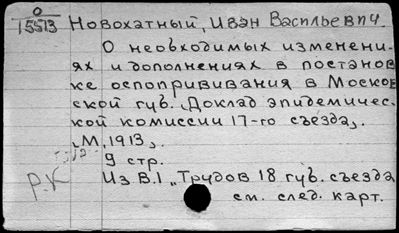 О
15513
Новохатный, Иван Васильевич.
О необходимых изменени-
ях и дополнениях в постанов
ке оспопрививания в Москов
ской губ. „Доклад эпидемичес-
кой комиссии 17-го съезда„.
„М, 1913„.
9 стр.
Р.К
Из В.I „Трудов 18 губ. съезда
см. след. карт.